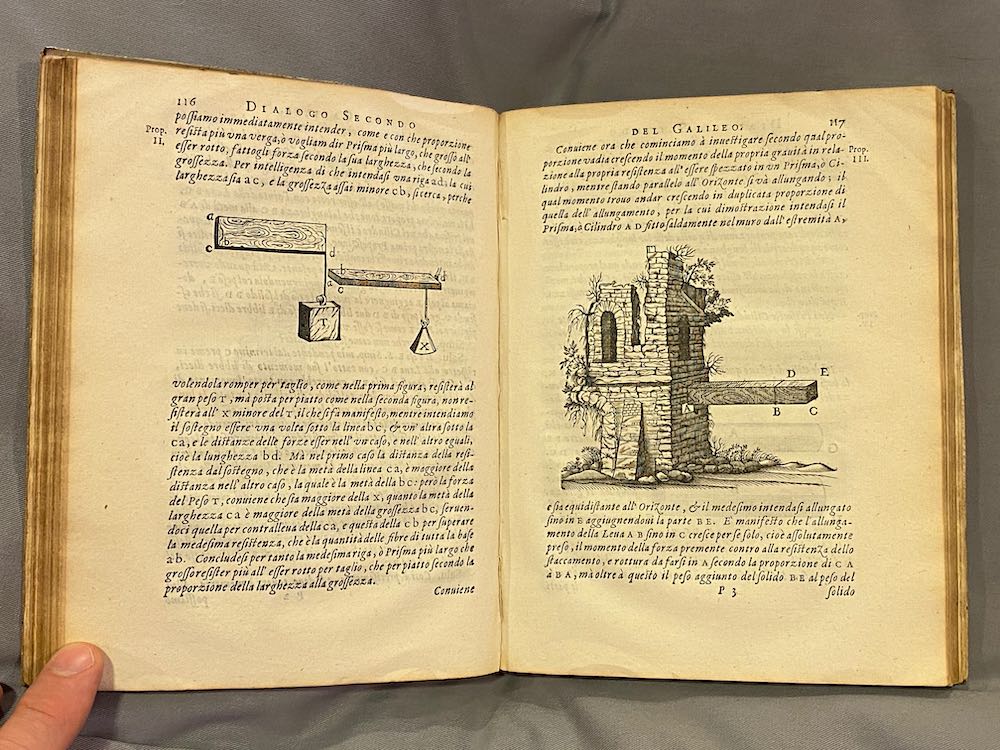 116
DIALOGO SECONDO
possiamo immediatamente intender, come e con che proporzione
Prop. II.
resista più una verga, ò vogliam dir Prisma più largo, che grosso all'
esser rotto, fattogli forza secondo la sua larghezza, che secondo la
grossezza. Per intelligenza di che intendasi una riga ad, la cui
larghezza sia ac, e la grossezza assai minore cb, si cerca, perche
a
c
b
d
T
b
a
c
d
X
volendola romper per taglio, come nella prima figura, resisterà al
gran peso T, mà posta per piatto come nella seconda figura, non re-
sisterà all' X minore del T, il che si fà manifesto, mentre intendiamo
il sostegno essere una volta sotto la linea bc, & un' altra sotto la
ca, e le distanze delle forze esser nell' vn caso, e nell' altro eguali,
cioè la lunghezza bd. Mà nel primo caso la distanza della resi-
stenza dal sostegno, che è la metà della linea ca, è maggiore della
distanza nell' altro caso, la quale è la metà della bc: però la forza
del Peso T, conuiene che sia maggiore della X, quanto la metà della
larghezza ca è maggiore della metà della grossezza bc, seruen-
doci quella per contralleua della ca, e questa della cb per superare
la medesima resistenza, che è la quantità delle fibre di tutta la base
ab. Concludesi per tanto la medesima riga, ò Prisma più largo che
grosso resister più all' esser rotto per taglio, che per piatto secondo la
proporzione della larghezza alla grossezza.
Conuiene
DEL GALILEO.
117
Conuiene ora che cominciamo à inuestigare secondo qual pro-
porzione vadia crescendo il momento della propria grauità in rela-
Prop. III.
zione alla propria resistenza all' essere spezzato in vn Prisma, ò Ci-
lindro, mentre stando parallelo all' Orizonte si và allungando; il
qual momento trouo andar crescendo in duplicata proporzione di
quella dell' allungamento, per la cui dimostrazione intendasi il
Prisma, ò Cilindro AD fitto saldamente nel muro dall' estremità A,
D
E
A
B
C
e sia equidistante all' Orizonte, & il medesimo intendasi allungato
sino in E aggiugnendoui la parte BE. E' manifesto che l' allunga-
mento della Leua AB sino in C cresce per se solo, cioè assolutamente
preso, il momento della forza premente contro alla resistenza dello
staccamento, e rottura da farsi in A secondo la proporzione di CA
à BA, mà oltre à questo il peso aggiunto del solido BE al peso del
P 3
solido